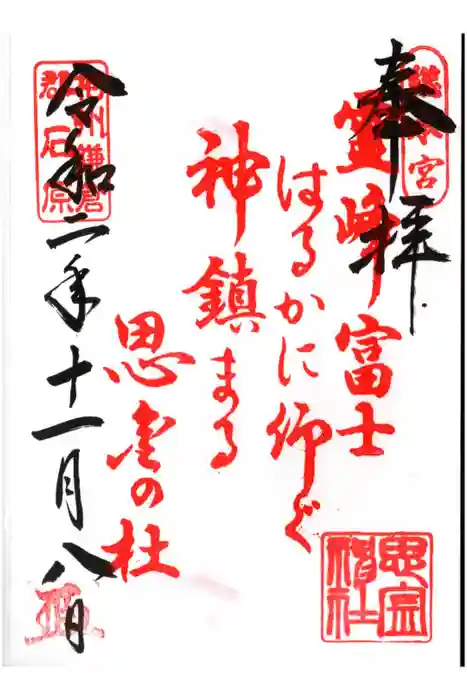 奉拝
総本宮
霊峰富士
はるかに仰ぐ
神鎮まる
思金の杜
思金
神社
相州鎌倉
郡石原
令和二年十一月八日